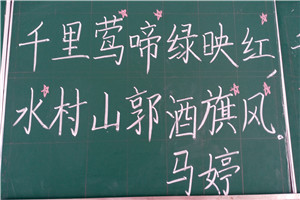 千里莺啼绿映红
水村山郭酒旗风
马婷